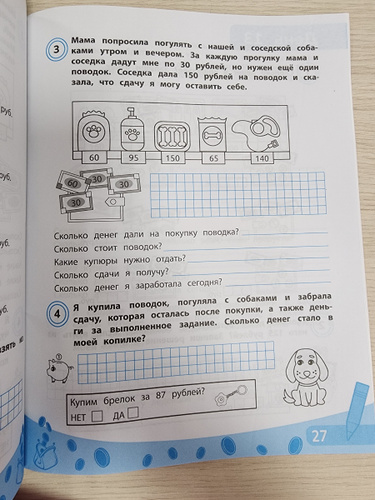 3 Мама попросила погулять с нашей и соседской соба-
ками утром и вечером. За каждую прогулку мама и
соседка дадут мне по 30 рублей, но нужен ещё один
поводок. Соседка дала 150 рублей на поводок и ска-
зала, что сдачу я могу оставить себе.
60 95 150 65 140
60 30 30
30
Сколько денег дали на покупку поводка?
Сколько стоит поводок?
Какие купюры нужно отдать?
Сколько сдачи я получу?
Сколько денег я заработала сегодня?
4 Я купила поводок, погуляла с собаками и забрала
сдачу, которая осталась после покупки, а также день-
ги за выполненное задание. Сколько денег стало в
моей копилке?
Купим брелок за 87 рублей?
НЕТ ДА
27
руб.
руб.
руб.